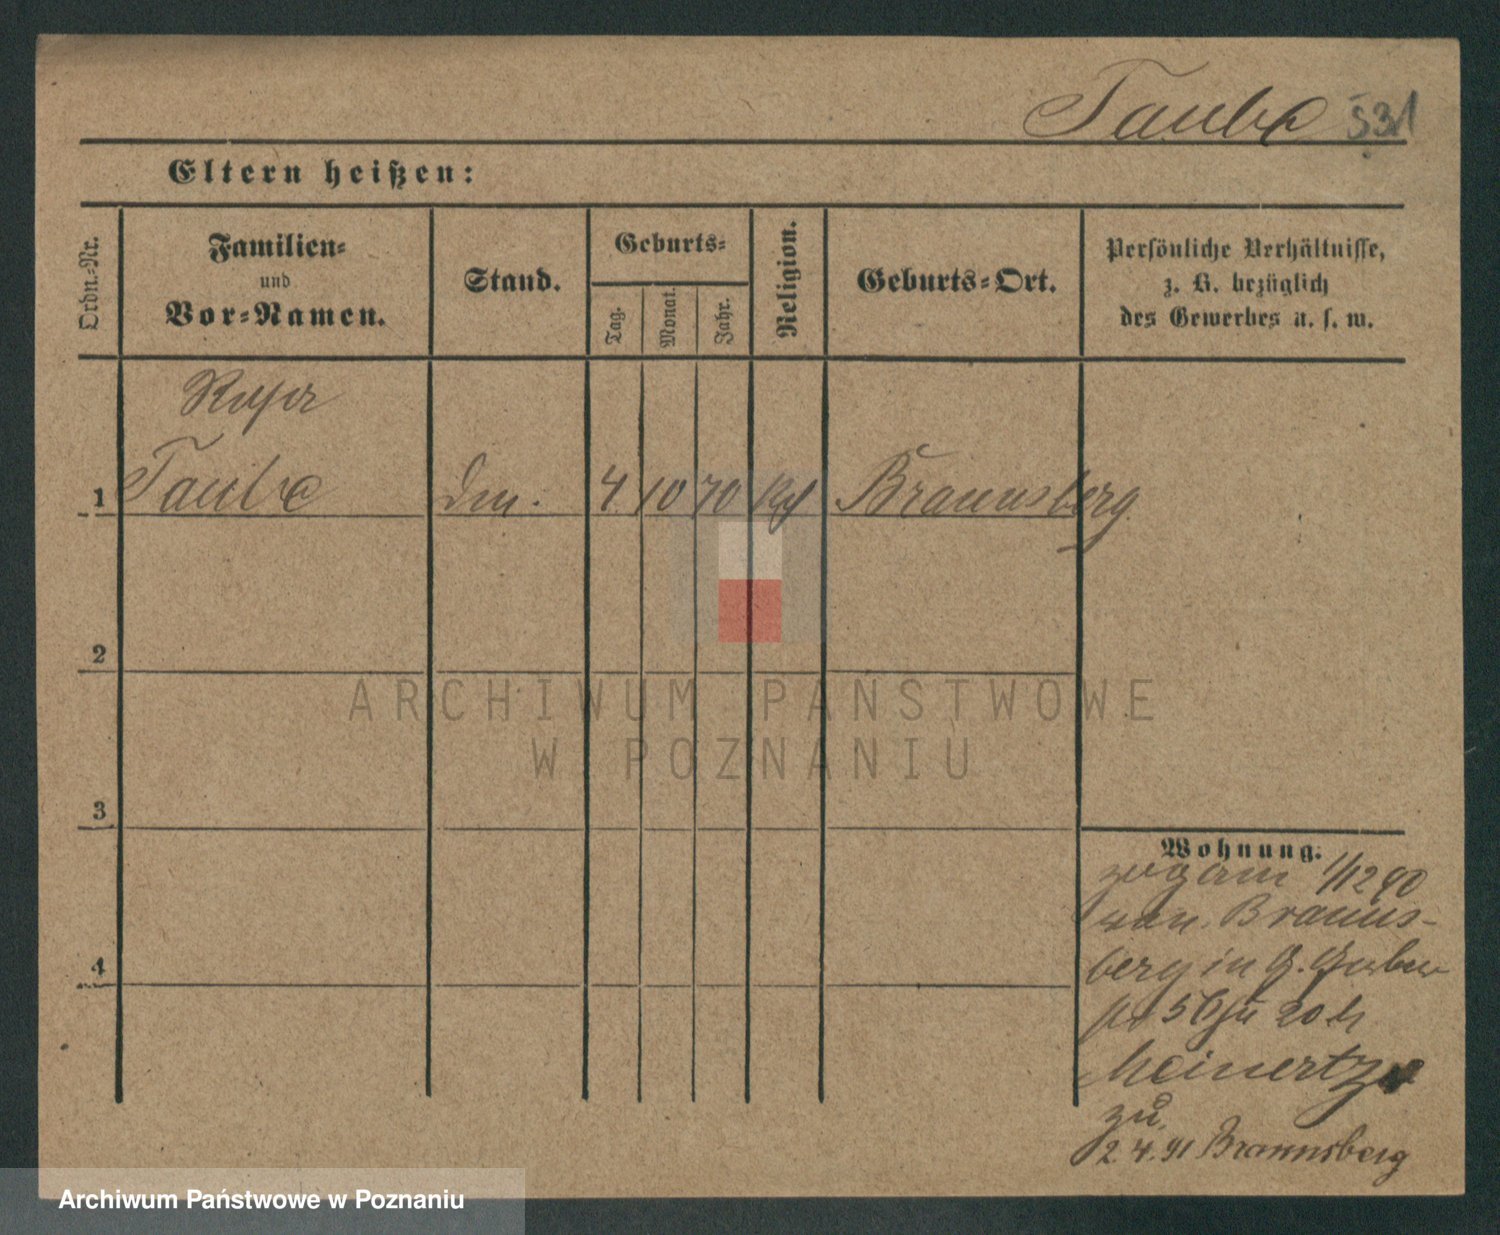 Taube 531
Eltern heißen:
Ordn.-Nr.
Familien-
und
Vor-Namen.
Stand.
Geburts-
Tag.
Monat.
Jahr.
Religion.
Geburts-Ort.
Persönliche Verhältnisse,
z. B. bezüglich
des Gewerbes u. s. w.
1 Taube 4 10 70 Braunsberg
2
3
4
Wohnung.
1/12 90
von Brauns-
berg in G.
20 b
Meinertz
zu
2.4.91 Braunsberg
ARCHIWUM PAŃSTWOWE
W POZNANIU
Archiwum Państwowe w Poznaniu